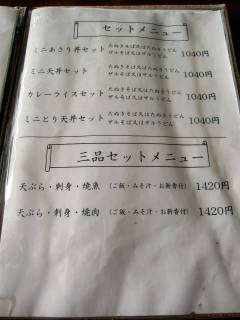 セットメニュー
ミニあさり丼セット たぬきそば又はたぬきうどん ザルそば又はザルうどん 1040円
ミニ天丼セット たぬきそば又はたぬきうどん ザルそば又はザルうどん 1040円
カレーライスセット たぬきそば又はたぬきうどん ザルそば又はザルうどん 1040円
ミニとり天丼セット たぬきそば又はたぬきうどん ザルそば又はザルうどん 1040円
三品セットメニュー
天ぷら・刺身・焼魚 (ご飯・みそ汁・お新香付) 1420円
天ぷら・刺身・焼肉 (ご飯・みそ汁・お新香付) 1420円